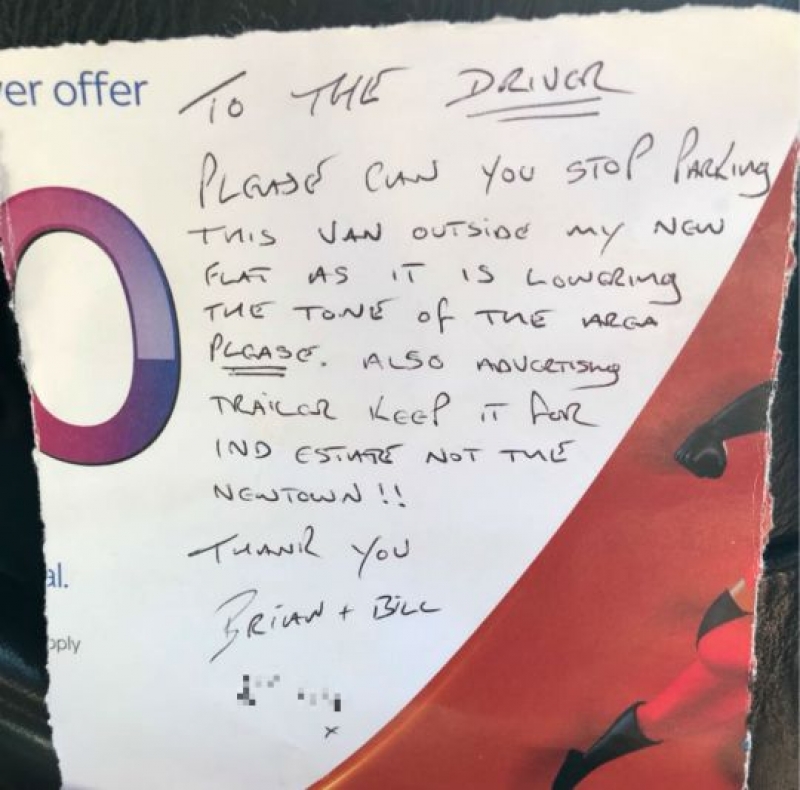 er offer
To THE DRIVER
PLEASE CAN YOU STOP PARKING
THIS VAN OUTSIDE MY NEW
FLAT AS IT IS LOWERING
THE TONE OF THE AREA
PLEASE. ALSO ADVERTISING
TRAILER KEEP IT FOR
IND ESTATE NOT THE
NEWTOWN!!
THANK YOU
al.
BRIAN + BILL
pply
x